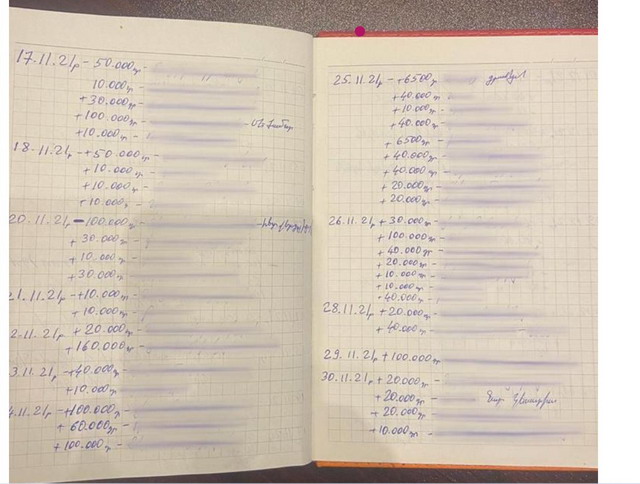 17.11.21թ – 50.000դր –
10.000դր –
+30.000դր –
+100.000դր –
+10.000դր –
18.11.21թ – +50.000դր –
+10.000դր –
+10.000դր –
+10.000դր –
20.11.21թ – 100.000դր –
+30.000դր –
+10.000դր –
+30.000դր –
21.11.21թ – +10.000դր –
+10.000դր –
2.11.21թ +20.000դր –
+160.000դր –
3.11.21թ – +40.000դր –
+10.000դր –
4.11.21թ – +100.000դր –
+60.000դր –
+100.000դր –
25.11.21թ – +6500դր
+40.000դր –
+10.000դր –
+40.000դր –
+6500դր
+40.000դր –
+40.000դր –
+20.000դր –
+20.000դր –
26.11.21թ +30.000դր –
+100.000դր –
+40.000դր –
+20.000դր –
+10.000դր –
+10.000դր –
+40.000դր –
28.11.21թ +20.000դր –
+40.000դր –
29.11.21թ +100.000դր
30.11.21թ +20.000դր –
+20.000դր –
+20.000դր –
+10.000դր –